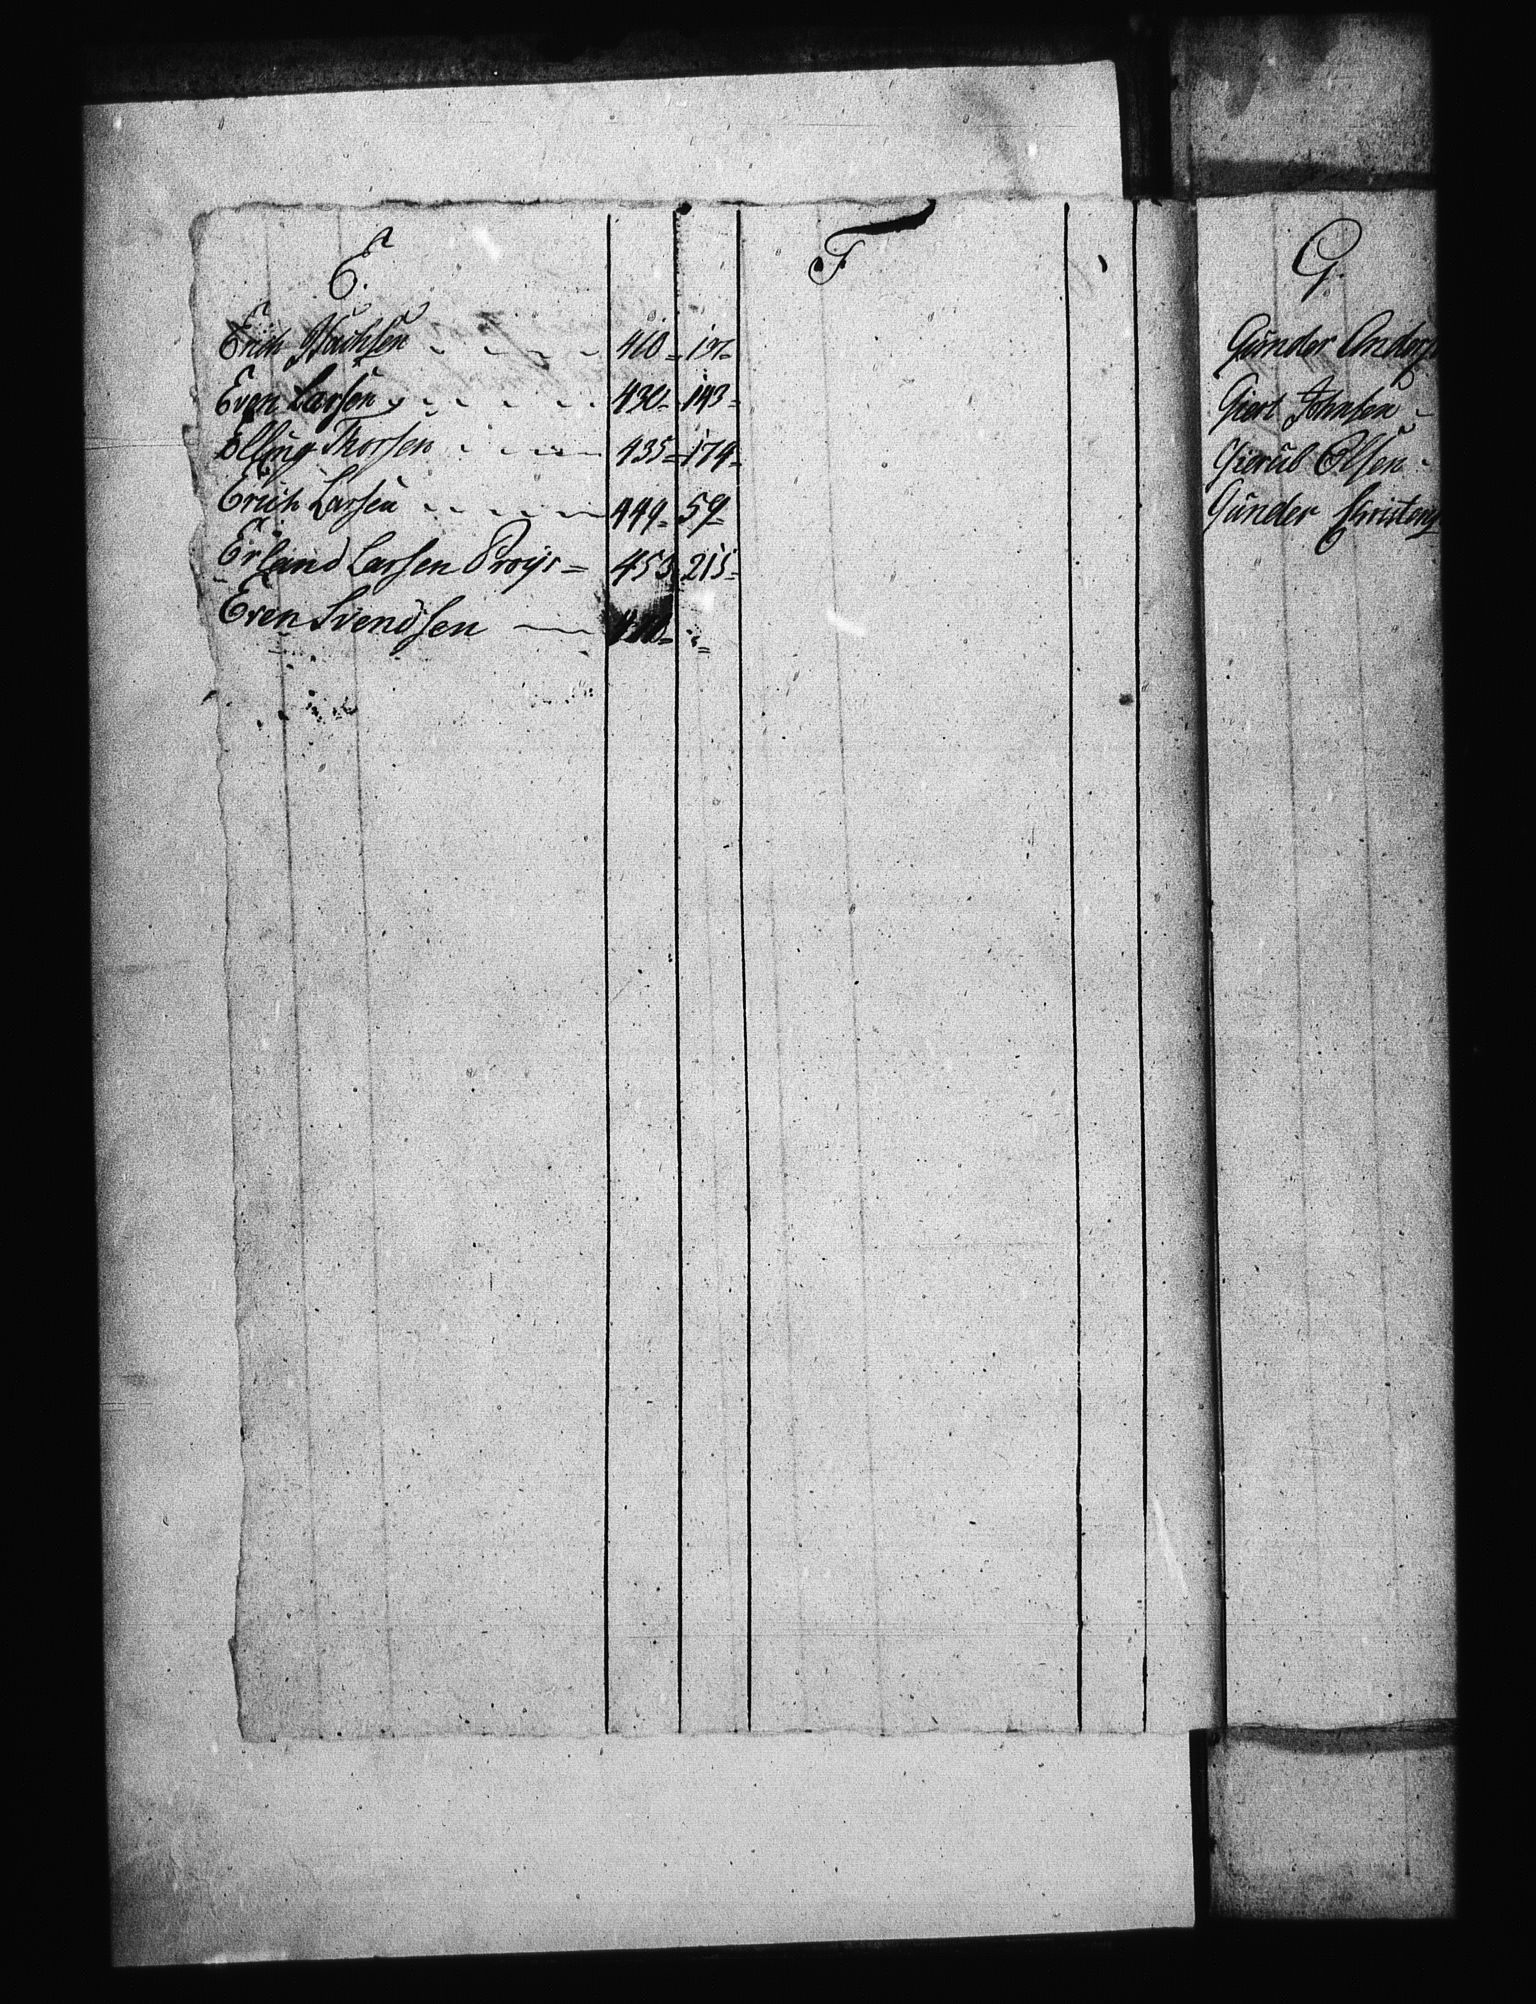 E.
Erich Isachsen 410 137
Even Larsen 430 143
Elling Thorsen 435 174
Erich Larsen 449 59
Erland Larsen Proys 453 215
Even Svendsen
F
G.
Gunder Anders
Giert Johnsen
Gierul Olsen
Gunder Christens